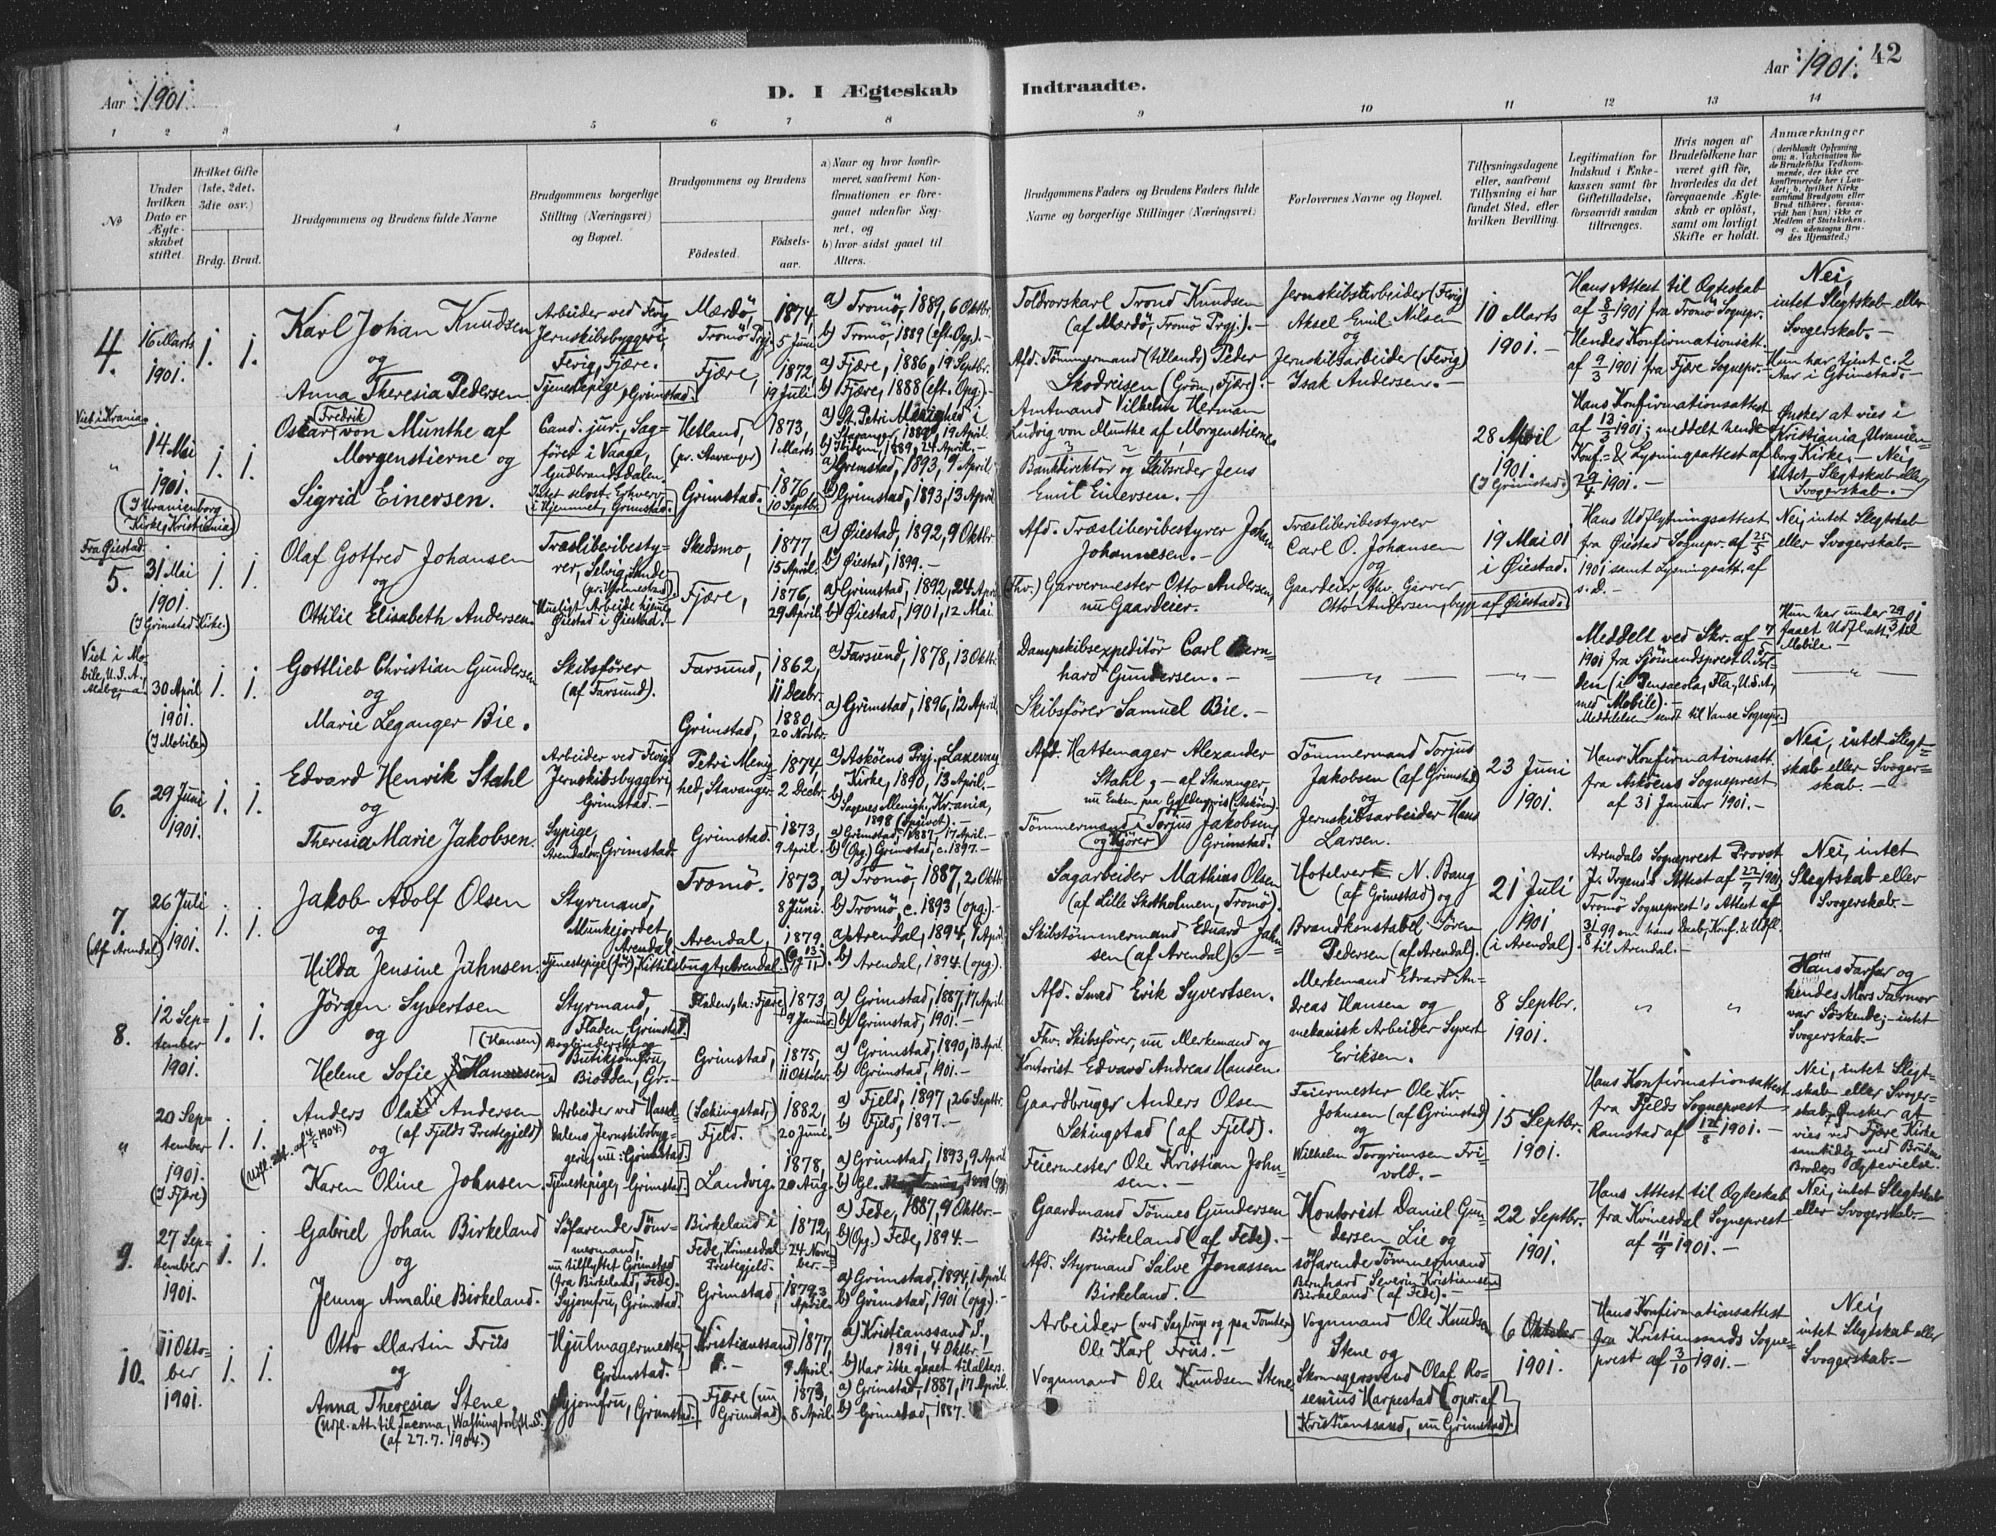 Aar 1901.
D. I Ægteskab Indtraadte.
Aar 1901. 42
1 2 3 4 5 6 7 8 9 10 11 12 13 14
№
Under hvilken Dato er Ægteskabet stiftet.
Hvilket Gifte (1ste, 2det, 3die osv.)
Brdg. Brud.
Brudgommens og Brudens fulde Navne
Brudgommens borgerlige Stilling (Næringsvei) og Bopæl.
Brudgommens og Brudens
Födested. Födselsaar.
a) Naar og hvor konfirmeret, saafremt Konfirmationen er foregaaet udenfor Sognet, og
b) hvor sidst gaaet til Alters.
Brudgommens Faders og Brudens Faders fulde Navne og borgerlige Stillinger (Næringsvei)
Forlovernes Navne og Bopæl.
Tillysningsdagene eller, saafremt Tillysning ei har fundet Sted, efter hvilken Bevilling.
Legitimation for Indskud i Enkekassen samt for Giftetilladelse, forsaavidt saadan tiltrænges.
Hvis nogen af Brudefolkene har været gift før, hvorledes da det foregaaende Ægteskab er oplöst, samt om lovligt Skifte er holdt.
Anmærkninger (deriblandt Oplysning om: a. Vaksinatien for de Brudefolks Vedkommende, der ikke ere konfirmerede her i Landet; b. hvilket Kirkesamfund Brudgom eller Brud tilhörer, forsaavidt han (hun) ikke er Medlem af Statskirken, og c. udensogns Brudes Hjemsted.)
4.
16 Marts
1901.
1. 1.
Karl Johan Knudsen
og
Anna Theresia Pedersen
Arbeider ved Fevig
Jernskibsbyggeri,
Fevig, Fjære.
Tjenestepige, Grimstad.
Mærdö,
Tromö Prgj.
Fjære,
1874,
5 Juni
1872
19 Juli
a) Tromö, 1889, 6 Oktbr.
b) Tromö, 1889 (eft. Opg.).-
a) Fjære, 1886, 19 Septbr.
b) Fjære, 1888 (eft. Opg.).-
Toldrorskarl Trond Knudsen
(af Mærdö, Tromö Prgj.).-
Afd. Tömmermand (tillands) Peder
(Grön, Fjære).-
Jernskibsarbeider (Fevig)
Aksel Emil Nilsen
og
Jernskibsarbeider (Fevig)
Isak Andersen.-
10 Marts
1901.-
Hans Attest til Ægteskab
af 8/3 1901 fra Tromö Sognepr.
Hendes Konfirmationsatt.
af 9/3 1901 fra Fjære Sognepr.-
Nei,
intet Slegtskab eller
Svogerskab.-
Hun har tjent c. 2
Aar i Grimstad.-
Viet i Krania.
"
14 Mai
1901.
(I Uranienborg
Kirke, Kristiania)
1. 1.
Oskar Fredrik von Munthe af
Morgenstierne og
Sigrid Einersen.
Cand. jur., Sag-
förer i Vaage,
Gudbrandsdalen.
Intet selvst. Erhverv,
i Hjemmet, Grimstad.
Hetland,
(pr. Stavanger)
Grimstad.
1873,
1 Marts
1876,
10 Septbr.
a) St. Petri Menighed i
Stavanger, 1889, 19 April.
b) Ibidem, 1889, 24 April.-
a) Grimstad, 1893, 9 April
b) Grimstad, 1893, 13 April
Amtmand Vilhelm Herman
Ludvig von Munthe af Morgenstierne
Bankdirektör og Skibsreder Jens
Emil Einersen.-
28 April
1901.
(I Grimstad.)
Hans Konfirmationsattest
af 13/3 1901; meddelt hende
Konf.= & Lysningsattest af
29/4 1901.-
Önsker at vies i
Kristiania Uranien-
borg Kirke.- Nei,
intet Slegtskab eller
Svogerskab.-
Fra Øiestad.
5.
31 Mai
1901.
(I Grimstad Kirke.)
1. 1.
Olaf Gotfred Johansen
og
Ottilie Elisabeth Andersen.
Træsliberibesty-
rer, Selvig, Sande
(pr. Holmestrand)
Husligt Arbeide hjem.
Øiestad i Øiestad.-
Skedsmo,
Fjære,
1877,
15 April.
1876,
29 April.
a) Øiestad, 1892, 9 Oktbr
b) Øiestad, 1899.-
a) Grimstad, 1892, 24 April
b) Øiestad, 1901, 12 Mai
Afd. Træsliberibestyrer Johan
Johannesen.-
(Fhv.) Garvermester Otto Andersen,
nu Gaardeier.
Træsliberibestyrer
Carl O. Johansen
og
Gaardeier, fhv. Garver
Otto Andersen, begge af Øiestad.
19 Mai 01
i Øiestad.
Hans Udflytningsattest
fra Øiestad Sognepr. af 25/5
1901 samt Lysningsatt. af
s. d.-
Nei, intet Slegtskab
eller Svogerskab.-
Viet i Mo-
bile, U.S.A.,
Alabama.
30 April
1901.
(I Mobile.)
1. 1.
Gottlieb Christian Gundersen
og
Marie Leganger Bie.
Skibsförer
(af Farsund).
Farsund,
Grimstad,
1862,
11 Decbr.
1880,
20 Novbr.
a) Farsund, 1878, 13 Oktbr.
a) Grimstad, 1896, 12 April.
Dampskibsexpeditör Carl Bern-
hard Gundersen.-
Skibsförer Samuel Bie.-
-"-
-"-
Meddelt ved Skr. af 7/
1901 fra Sjömandsprest O. Fri-
den (i Pensacola, Fla., U.S.A.,
med Mobile).-
Meddelelse sendt til Vanse Sognepr.
Hun har under 29/3 01
faaet Udflatt. til
Mobile.-
-"-
6.
29 Juni
1901.
1. 1.
Edvard Henrik Stahl
og
Theresia Marie Jakobsen.
Arbeider ved Fevigs
Jernskibsbyggeri,
Grimstad.-
Sypige,
Arendalsv. Grimstad.
Petri Menig-
hed, Stavanger
Grimstad.
1874,
2 Decbr.
1873,
9 April.
a) Asköens Prgj., Laxevaag
Kirke, 1890, 13 April.-
b) Sagenes Menigh., Krania,
1898 (opgivet).-
a) Grimstad, 1887, 17 April.-
b) (Opg.) Grimstad, c. 1897.-
Afd. Hattemager Alexander
Stahl,- af Stavanger,
nu Enken paa Gyldenpris (Asköen).
Tömmermand Torjus Jakobsen,
og Kjörer Grimstad.
Tömmermand Torjus
Jakobsen (af Grimstad)
og
Jernskibsarbeider Hans
Larsen.
23 Juni
1901.
Hans Konfirmationsatt.
fra Asköens Sogneprest
af 31 Januar 1901.-
Nei, intet Slegt-
skab eller Svoger-
skab.-
7.
(Af Arendal.)
26 Juli
1901.
1. 1.
Jakob Adolf Olsen
og
Hilda Jensine Johnsen.
Styrmand,
Munkejordet,
Arendal
Tjenestepige (för), Kittilsbugt, Arendal.
Tromö.
Arendal,
1873,
8 Juni.
1879.
a) Tromö, 1887, 2 Oktbr
b) Tromö, c. 1893 (opg.).-
a) Arendal, 1894, 1 April
b) Arendal, 1894. (opg.).
Sagarbeider Mathias Olsen
(af Lille Skotholmen, Tromö).
Skibstömmermand Eduard John-
sen (af Arendal).-
Hotelvert N. Bang
(af Grimstad) og
Brandkonstabel Sören
Pedersen (af Arendal).
21 Juli
1901
(i Arendal).
Arendals Sogneprest Provst
J. Irgens's Attest af 22/7 1901,
Tromö Sogneprest's Attest af
31/8 99 om hans Daab, Konf. & Udfl.
til Arendal.-
Nei, intet
Slegtskab eller
Svogerskab.-
8.
12 Sep-
tember
1901.
1. 1.
Jörgen Syvertsen
og
(Hansen)
Helene Sofie
Styrmand,
Fladen, Grimstad.
Bogbinderske og
Butikjomfru,
Biodden, Gr.-
Fladen, da: Fjære
Grimstad,
1873
9 Januar.
1875,
11 Oktober.
a) Grimstad, 1887, 17 April
b) Grimstad, 1901.-
a) Grimstad, 1890, 13 April
b) Grimstad, 1901.-
Afd. Smed Erik Syvertsen.
Fhv. Skibsförer, nu Merkemand og
Kontorist Edvard Andreas Hansen.
Merkemand Edvard An-
dreas Hansen og
mekanisk Arbeider Syvert
Eriksen.
8 Septbr.
1901.
" "
Hans Farfar og
hendes Mors Farmor
var Söskende;- intet
Svogerskab.-
"
20 Sep-
tember
1901.
(I Fjære)
1. 1.
(Udfl. att. af 4/5 1904.)
Anders Olai Andersen
(af Fjelds Prestegjeld)
og
Karen Oline Johnsen.
Arbeider ved Hassel-
dalens Jernskibsbyg-
geri, nu: Grimstad.
Tjenestepige, Grimstad.
(Sækingstad,)
Fjeld.
Landvig.
1882,
20 Juni.
1878,
20 Aug.
a) Fjeld, 1897, 26 Septbr.
b) Fjeld, 1897.-
a) Grimstad, 1893, 9 April
Gaardbruger Anders Olsen
Sækingstad (af Fjeld).
Feiermester Ole Kristian John-
sen.-
Feiermester Ole Kr.
Johnsen (af Grimstad)
og
Wilhelm Torgrimsen Fri-
vold.-
15 Septbr.
1901.
Hans Konfirmationsattest
fra Fjelds Sogneprest
Ramstad af 1901.-
Nei, intet Slegt-
skab eller Svoger-
skab. Önsker at
vies ved Fjære Kirke
samtidig med Brudens
Broders Ægtevielse.
9.
27 Sep-
tember
1901.
1. 1.
Gabriel Johan Birkeland
og
Jenny Amalie Birkeland.
Söfarende Töm-
mermand,
nu tilflyttet Grimstad
(fra Birkeland, Fede).
Syjomfru, Grimstad.
Birkeland i
Fede, Kvinesdal
Prestegjeld.
Grimstad,
1872,
24 Novem-
ber.-
1879, 3
April.
a) Fede, 1887, 9 Oktbr.-
b) (Opg.) Fede, 1894.-
a) Grimstad, 1894, 1 April
b) Grimstad, 1901 (opg.).-
Gaardmand Tönnes Gundersen
Birkeland (af Fede).-
Afd. Styrmand Salve Jonassen
Birkeland.-
Kontorist Daniel Gun-
dersen Lie og
söfarende Tömmermand
Bernhard Severin Kristiansen
Birkeland (af Fede).-
22 Septbr.
1901.
Hans Attest til Ægteskab
fra Kvinesdal Sogneprest
af 11/9 1901.-
Nei, intet Slegtskab
eller Svogerskab.-
10.
11 Okto-
ber
1901.
1. 1.
Otto Martin Friis
og
Anna Theresia Stene,
(Udfl. att. til Tacoma, Washington, U.S.)
(af 27.7.1904.)
Hjulmagermester
Grimstad.
Syjomfru, Grimstad.
Kristianssand
Fjære (nu
Grimstad).
1877,
9 April.
1873,
8 April.
a) Kristianssand S.,
1891, 4 Oktbr.-
b) Har ikke gaaet til alters.
a) Grimstad, 1887, 17 April.
b) Grimstad, 1887.-
Arbeider (ved Sagbrug og paa Tomten)
Ole Karl Friis.-
Vognmand Ole Knudsen Stene.
Vognmand Ole Knudsen
Stene og
Skomagersvend Olaf Ro-
senius Harpestad (opr. af
Kristianssand, nu Grimstad).
6 Oktober
1901.
Hans Konfirmationsattest
fra Kristianssands Sogne-
prest af 3/10 1901.-
Nei,
intet Slegtskab eller
Svogerskab.-